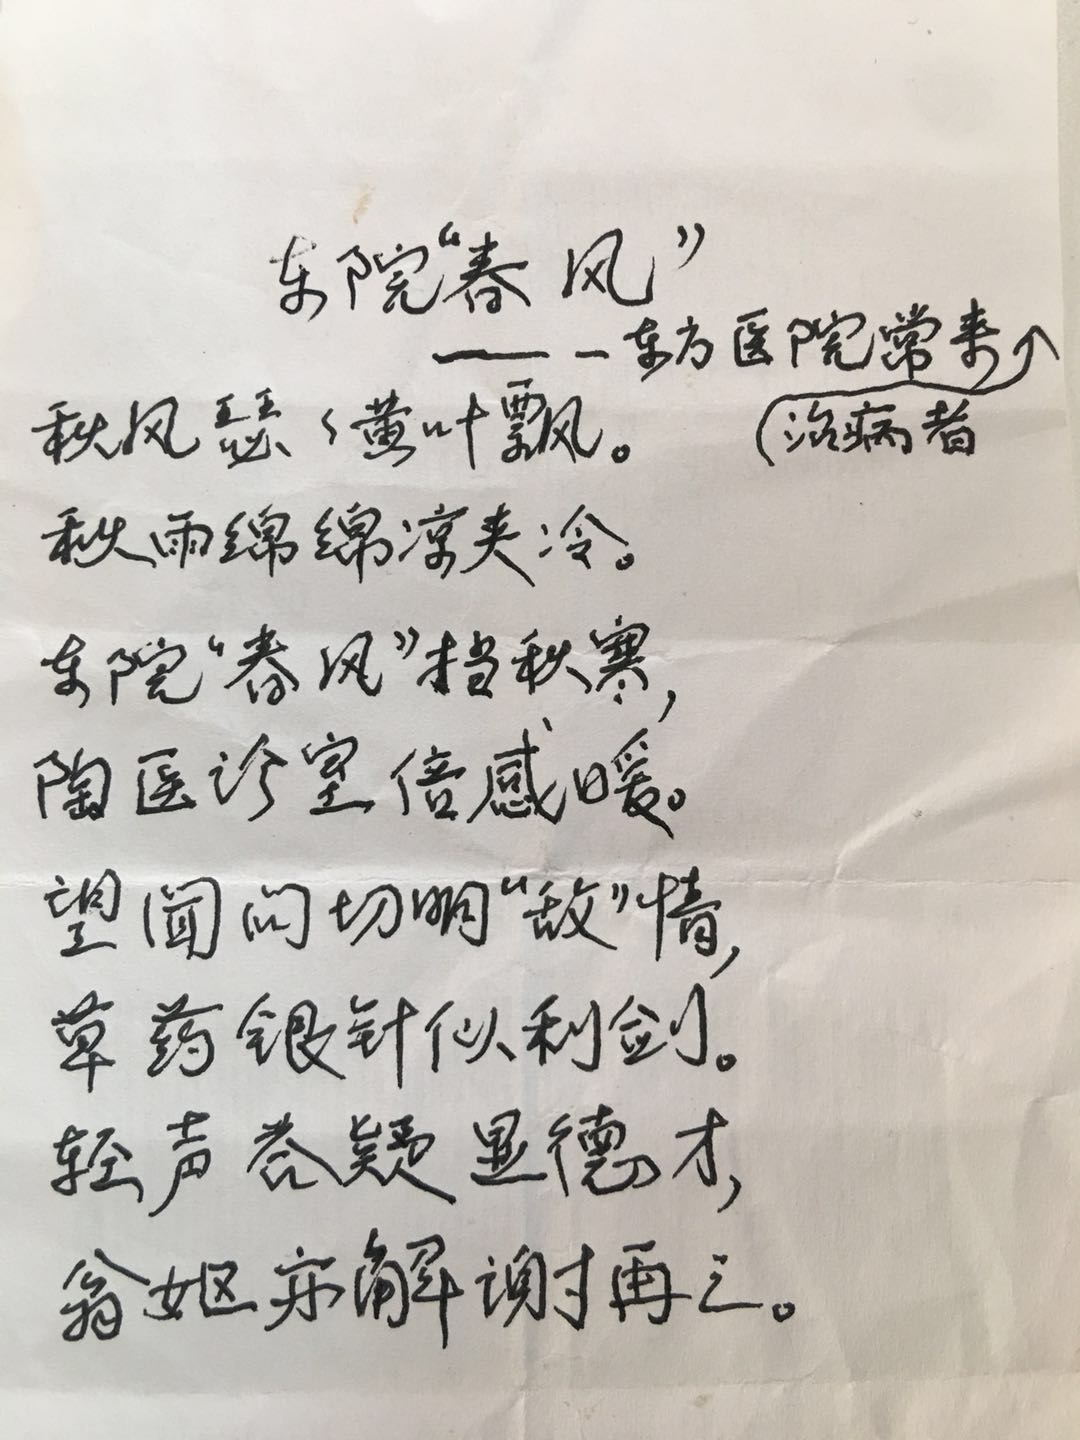 东院“春风”
——一东方医院常来
治病者
秋风瑟々黄叶飘。
秋雨绵绵凉夹冷。
东院“春风”挡秋寒，
陶医诊室倍感暖。
望闻问切明“敌”情，
草药银针似利剑。
轻声答疑显德才，
翁妪亦解谢再三。